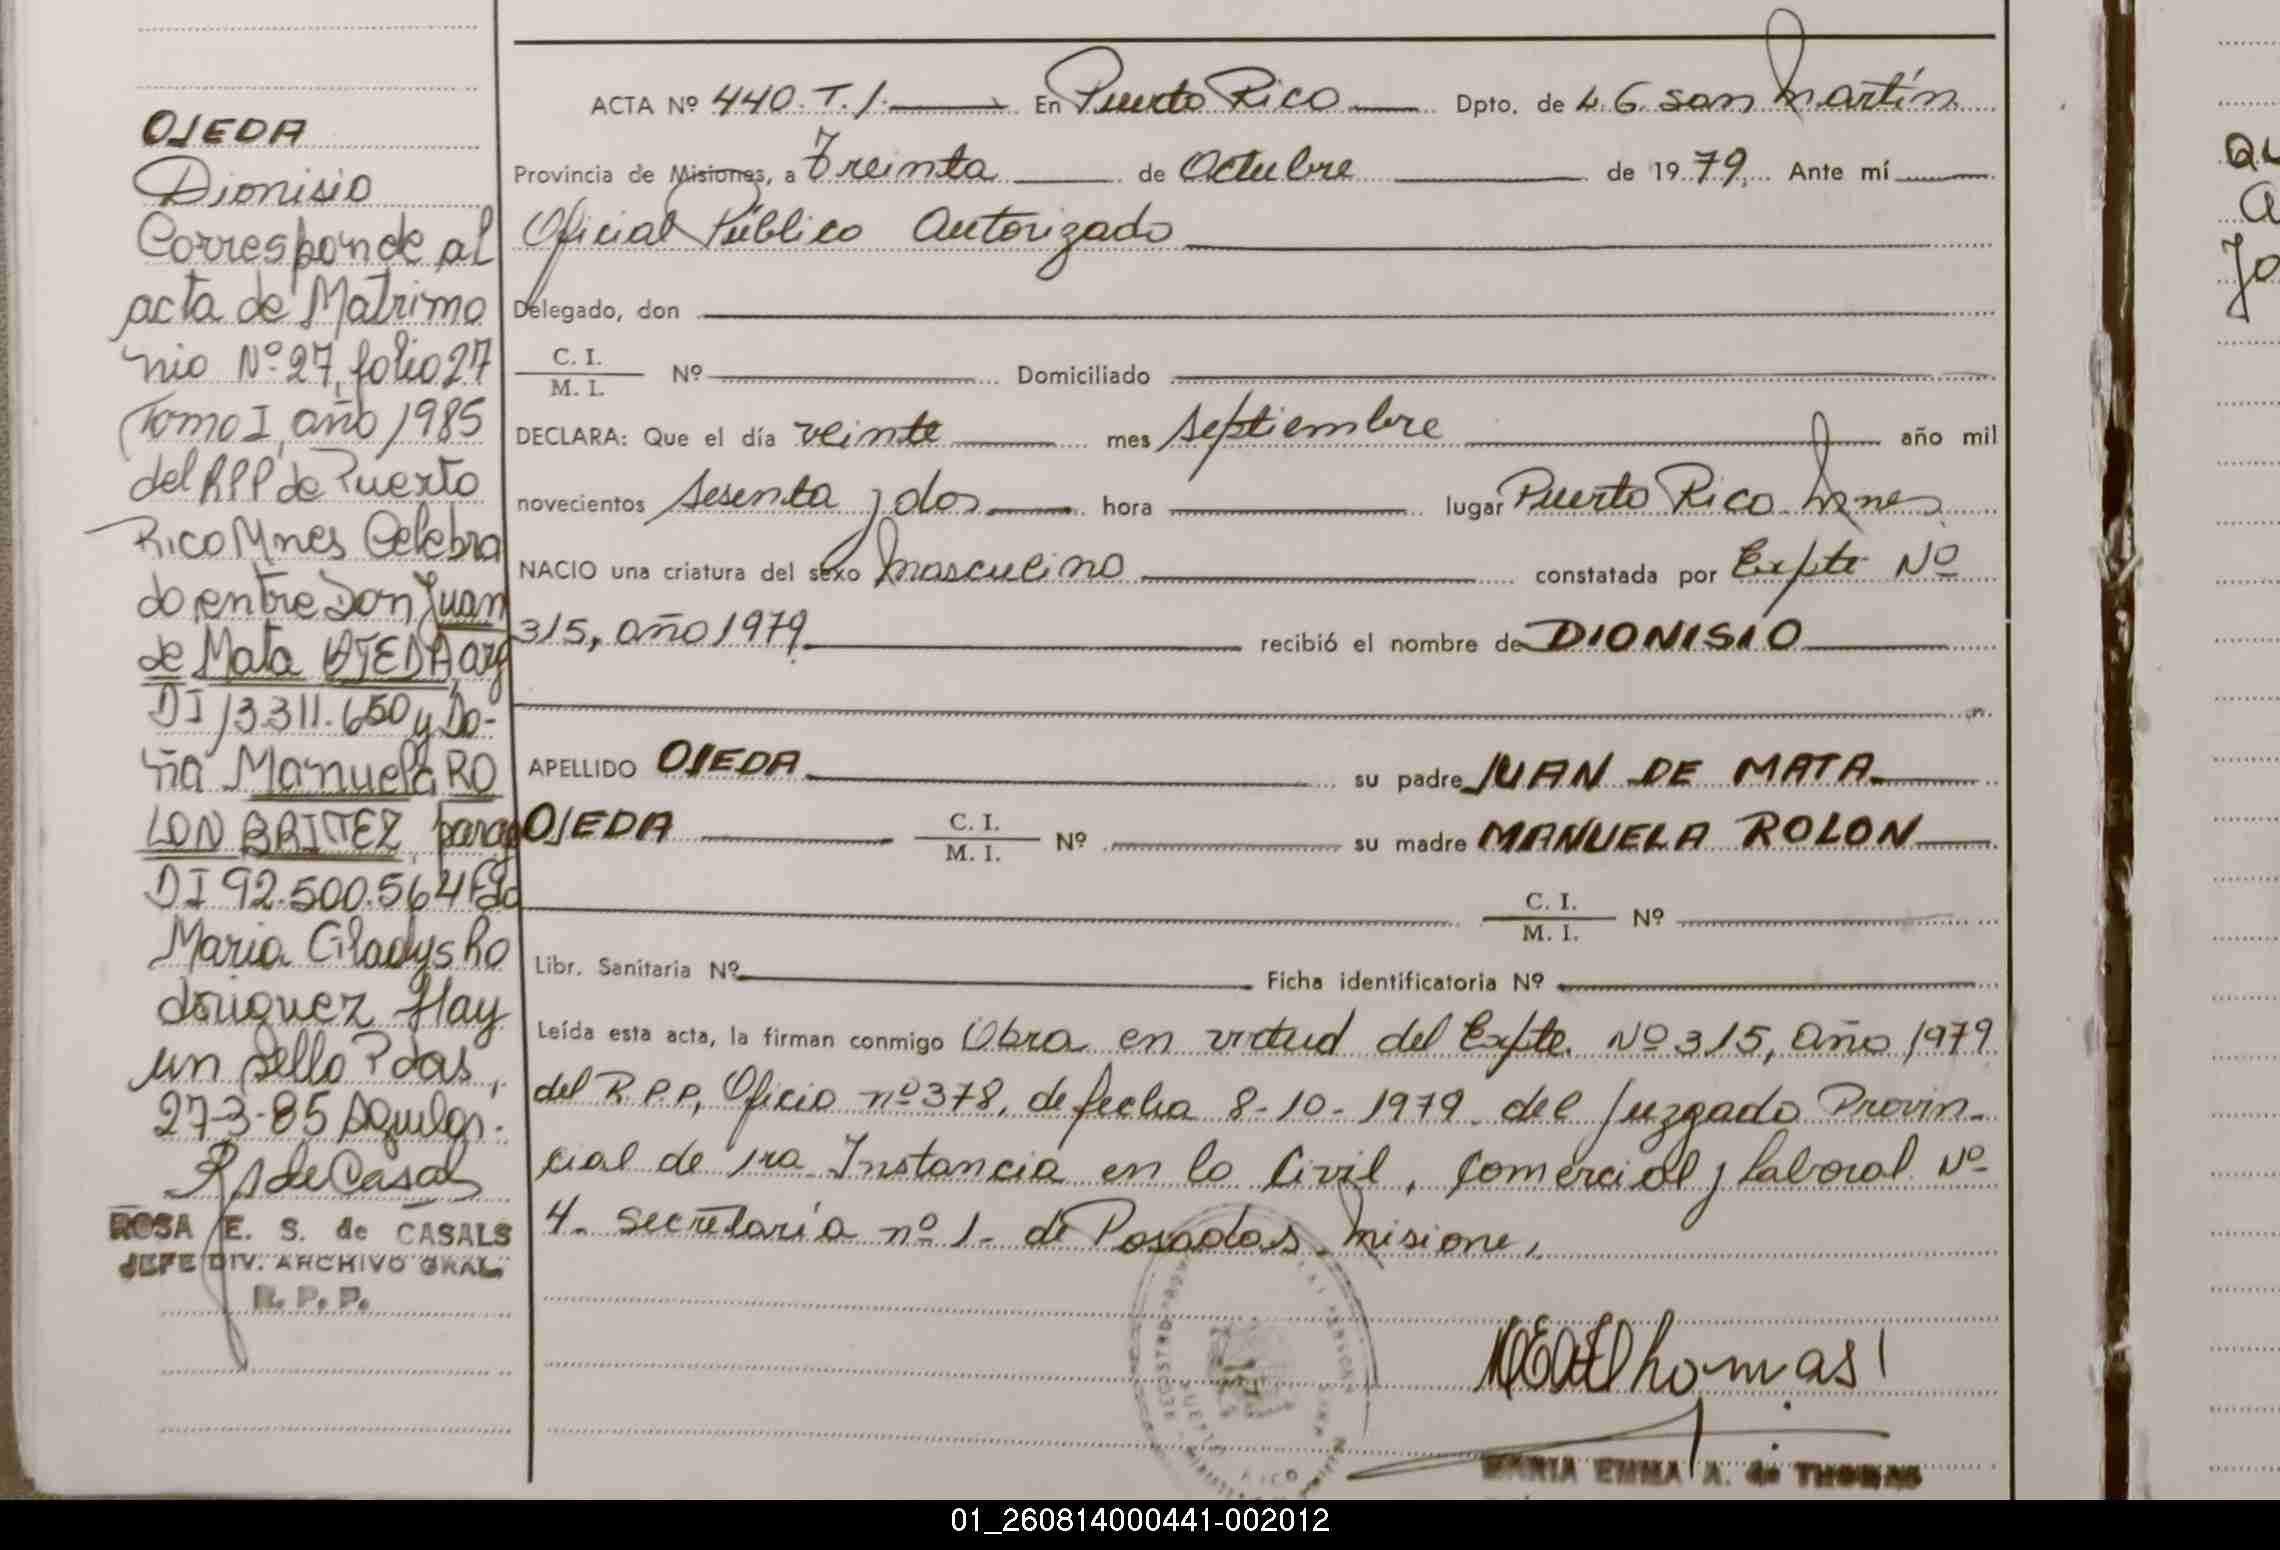 OJEDA
Dionisio
Corresponde al
acta de Matrimo
nio Nº 27, folio 27
Tomo I, año 1985
del RPP de Puerto
Rico Mnes Celebra
do entre Don Juan
de Mata OJEDA, arg
DI 13311.650 y Do-
ña Manuela RO
LON BRITEZ, parag
DI 92.500.564 Fdo
Maria Gladys Ro
driguez Hay
un sello Pdas,
27-3-85
ROSA E. S. de CASALS
JEFE DIV. ARCHIVO GRAL.
R. P. P.
ACTA Nº 440. T. I. En Puerto Rico Dpto. de L. G. San Martín
Provincia de Misiones, a Treinta de Octubre de 1979, Ante mí
Oficial Público Autorizado
Delegado, don
C. I.
M. I. Nº Domiciliado
DECLARA: Que el día veinte mes septiembre año mil
novecientos sesenta y dos hora lugar Puerto Rico Mnes
NACIO una criatura del sexo Masculino constatada por Expte Nº
315, año 1979 recibió el nombre de DIONISIO
APELLIDO OJEDA su padre JUAN DE MATA
OJEDA C. I. M. I. Nº su madre MANUELA ROLON
C. I.
M. I. Nº
Libr. Sanitaria Nº Ficha identificatoria Nº
Leída esta acta, la firman conmigo Obra en virtud del Expte. Nº 315, año 1979
del R.P.P, Oficio nº 378, de fecha 8-10-1979 del Juzgado Provin-
cial de 1ra Instancia en lo Civil, Comercial y laboral Nº
4- Secretaría nº 1- de Posadas Misiones
MARIA EMMA A. de THOMAS
01_260814000441-002012